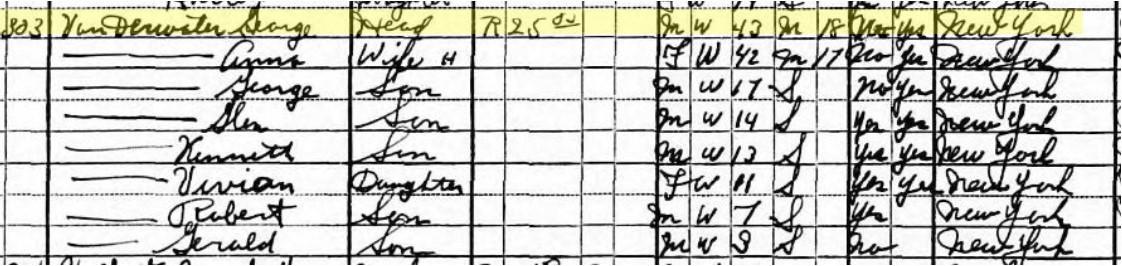 803 Van Derwater George Head R 25 00 M W 43 M 18 Yes Yes New York
Anna Wife H F W 42 M 17 No Yes New York
George Son M W 17 S No Yes New York
Glen Son M W 14 S Yes Yes New York
Kenneth Son M W 13 S Yes Yes New York
Vivian Daughter F W 11 S Yes Yes New York
Robert Son M W 7 S Yes New York
Gerald Son M W 3 S No New York